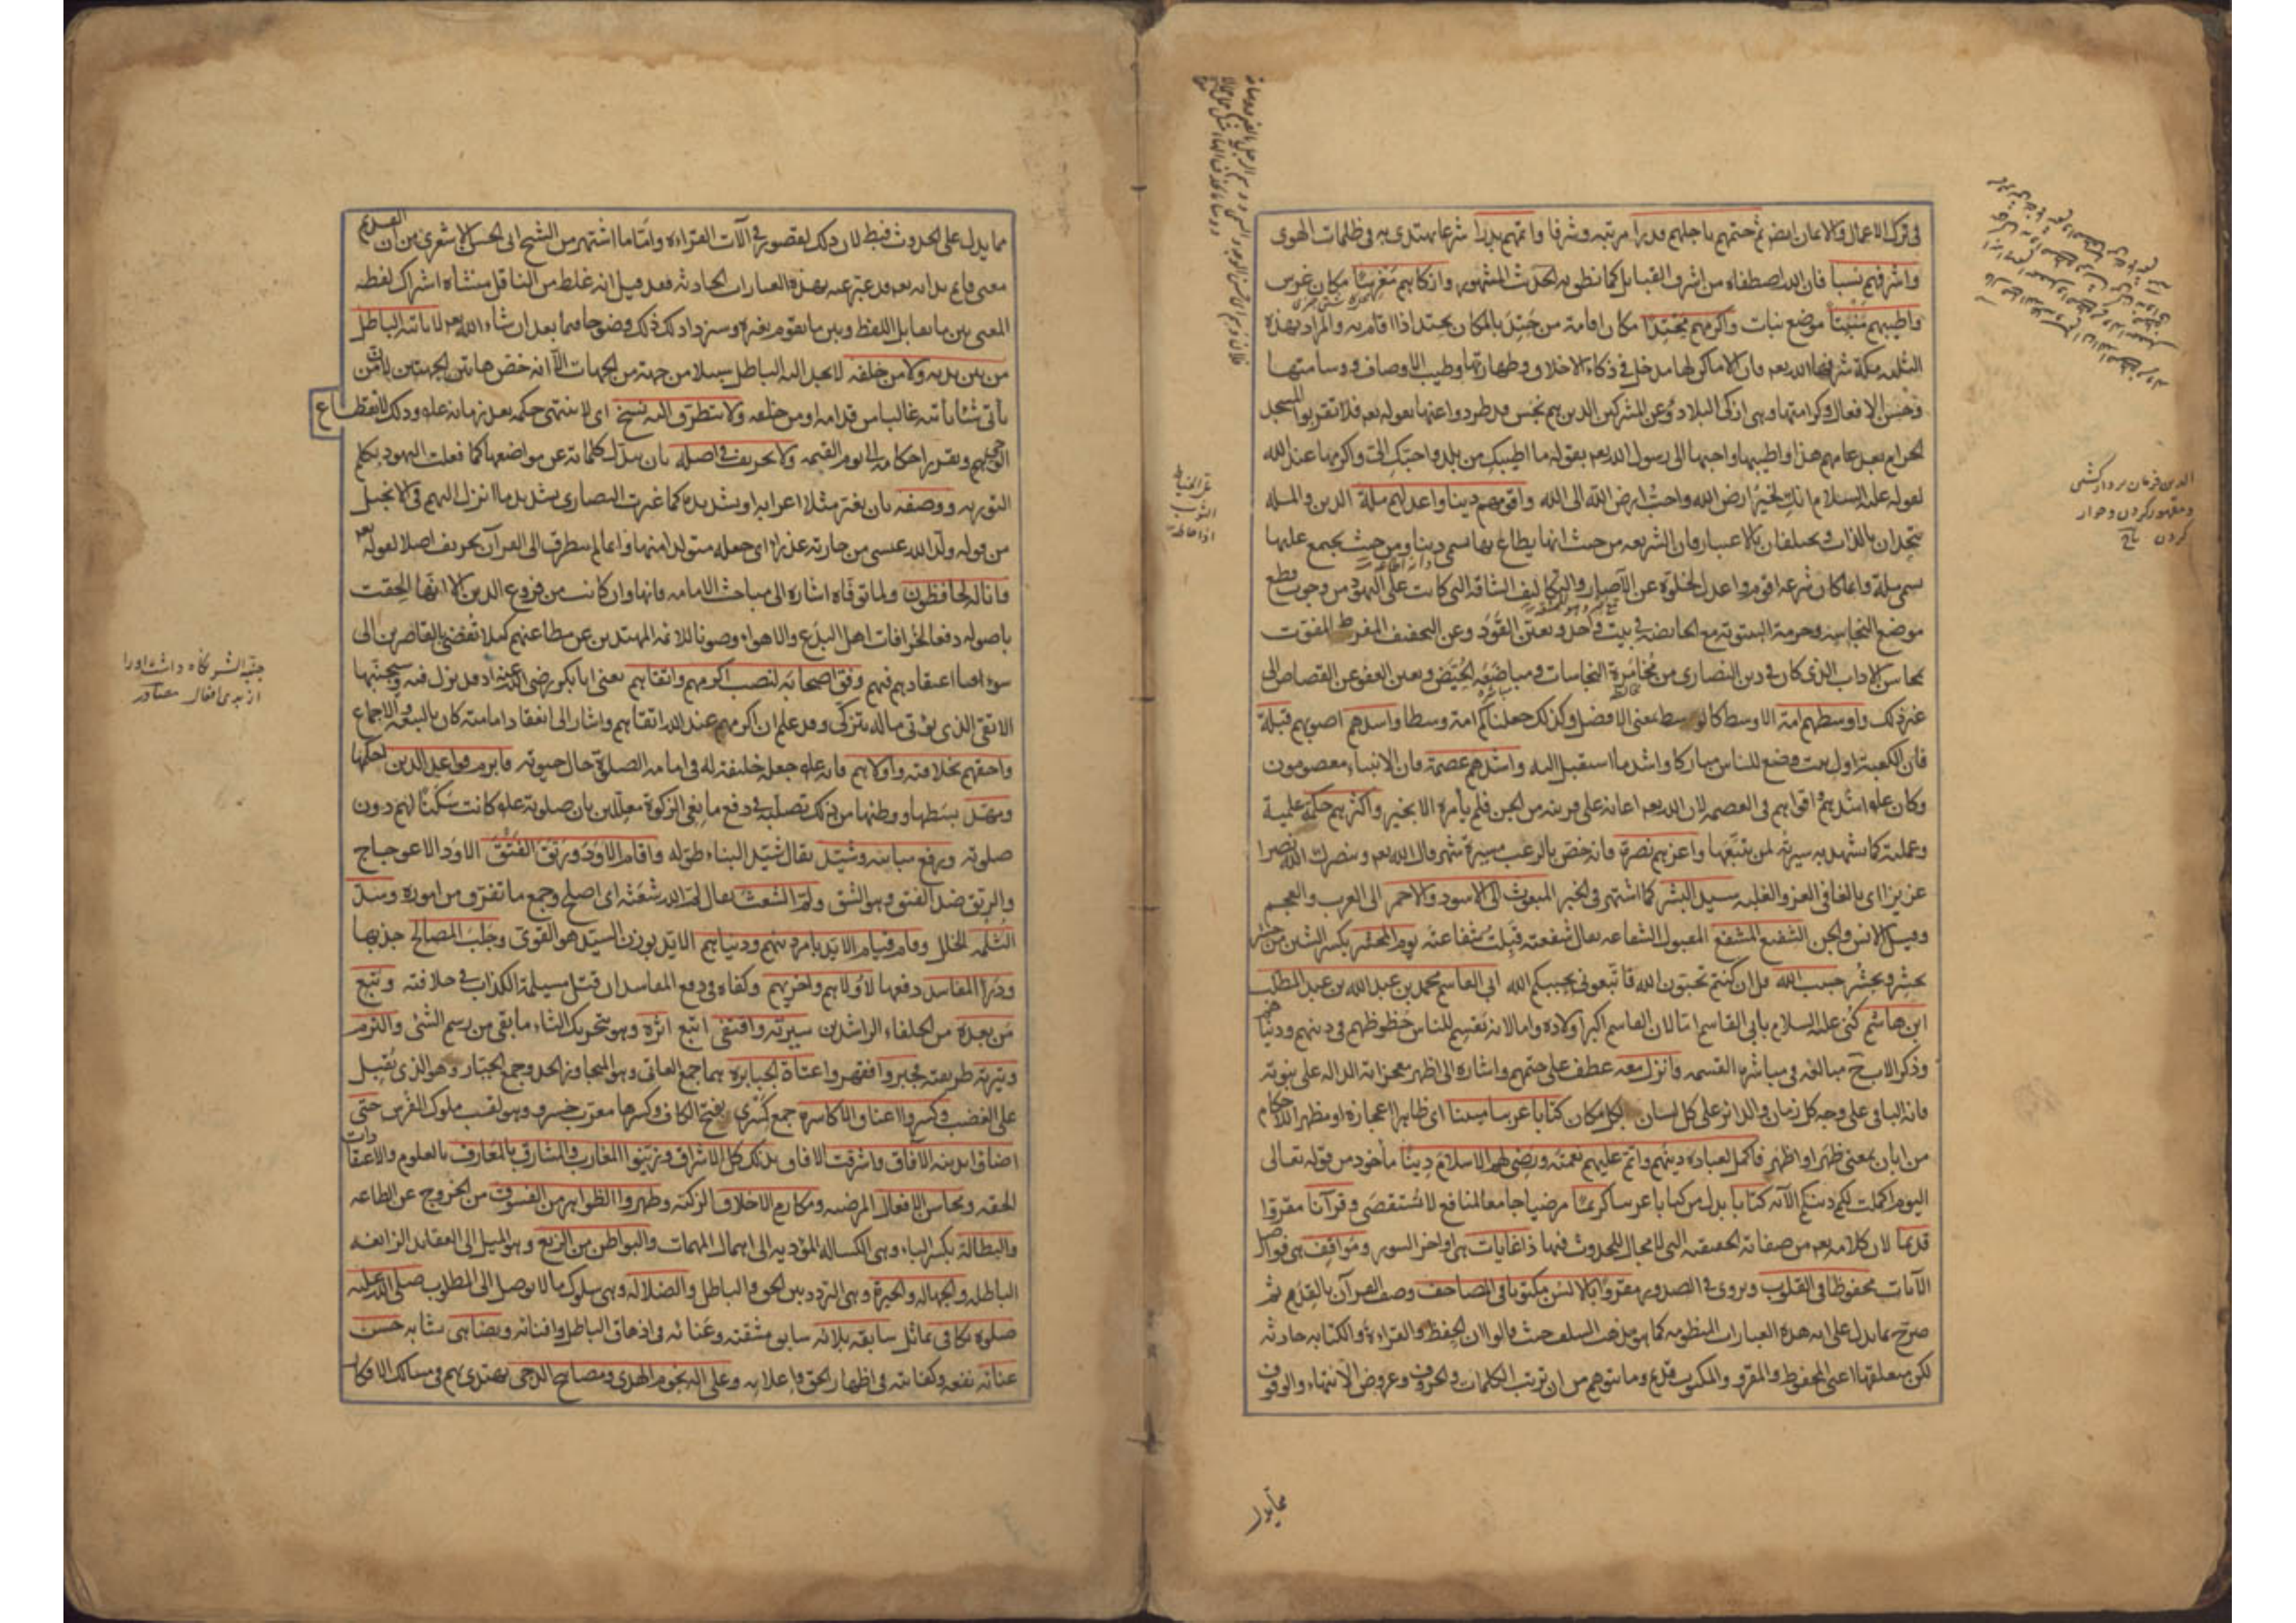 في ترك الاعمال والايمان ايضا ثم ختمهم باجلهم قدرا مرتبه وشرفا واتمهم بدرا شرعا يهتدى به في ظلمات الهوى
واشرفهم نسبا فان الله اصطفاه من اشرف القبايل كما نطق به الحديث المشهور وازكاهم مغرسا مكان غرس
واطيبهم منبتا موضع نبات واكرمهم محتدا مكان اقامة من حتد بالمكان يحتد اذا اقام به والمراد بهذه
الثلثه مكة شرفها الله تعه فان الاماكن لها مدخل في ذكاء الاخلاق وطهارتها وطيب الاوصاف ووسامتها
وحسن الافعال وكرامتها وهى ازكى البلاد وعن المشركين الذين هم نجس قد طردوا عنها بقوله تعه فلا تقربوا المسجد
الحرام بعد عامهم هذا واطيبها واحبها الى رسول الله بقوله ما اطيبك من بلد واحبك الى واكرمها عند الله
لقوله عليه السلام انك لخير ارض الله واحب ارض الله الى الله واقومهم دينا واعدلهم ملة الدين والملة
يتحدان بالذات ويختلفان بالاعتبار فان الشريعه من حيث انها يطاع بها تسمى دينا ومن حيث يجتمع عليها
تسمى ملة وانما كان شرعه اقوم واعدل لخلوه عن الآصار والتكاليف الشاقه التى كانت على اليهود من وجوب قطع
موضع النجاسه وحرمة البيتوته مع الحائض في بيت واحد وتعين القود وعن التخفيف المفرط المفوت
لمحاسن الاداب الذى كان في دين النصارى من مخامرة النجاسات ومباضعة الحيض وتعين العفو عن القصاص الى
غير ذلك واوسطهم امة الاوسط كالوسط بمعنى الافضل وكذلك جعلناكم امة وسطا واسدهم اصوبهم قبلة
فان الكعبة اول بيت وضع للناس مباركا واسد ما استقبل اليه واشدهم عصمة فان الانبياء معصومون
وكان عله اشدهم واقواهم في العصمه لان الله تعه اعانه على قرينه من الجن فلم يأمره الا بخير واكثرهم حكمة علمية
وعملية كما تشهد به سيرته لمن تتبعها واعزهم نصرة فانه خص بالرعب مسيرة شهر قال الله تعه وينصرك الله نصرا
عزيزا اى بالغا في العز والغلبه سيد البشر كما اشتهر في الخبر المبعوث الى الاسود والاحمر الى العرب والعجم
وقيل الانس والجن الشفيع المشفع المقبول الشفاعه يقال شفعته قبلت شفاعته يوم المحشر بكسر الشين من حشر
يحشر ويحشر حبيب الله قل ان كنتم تحبون الله فاتبعونى يحببكم الله ابي القاسم محمد بن عبد الله بن عبد المطلب
ابن هاشم كنى عليه السلام بابى القاسم اما لان القاسم اكبر اولاده واما لانه يقسم للناس حظوظهم في دينهم ودنياهم
وذكر الاب ح مبالغه في مباشره القسمه وانزل معه عطف على ختمهم واشاره الى اظهر معجزاته الداله على نبوته
فانه الباقى على وجه كل زمان والدائر على كل لسان بكل مكان كتابا عربيا مبينا اى ظاهرا اعجازه او مظهرا الاحكام
من ابان بمعنى ظهر او اظهر فاكمل لعباده دينهم واتم عليهم نعمته ورضى لهم الاسلام دينا مأخود من قوله تعالى
اليوم اكملت لكم دينكم الآيه كتابا بدل من كتابا عربيا كريما مرضيا جامعا لمنافع لا تستقصى وقرآنا مقروا
قديما لان كلامه تعه من صفاته الحقيقيه التى لا مجال للحدوث فيها ذا غايات هى اواخر السور ومواقف هى فواصل
الآيات محفوظا في القلوب ويروى في الصدور مقروا بالالسن مكتوبا في المصاحف وصف القرآن بالقدم ثم
صرح بما يدل على انه هذه العبارات المنظومه كما هو مذهب السلف حيث قالوا ان الحفظ والقراءة والكتابه حادثه
لكن متعلقها اعنى المحفوظ والمقرو والمكتوب قديم وما يتوهم من ان ترتيب الكلمات والحروف وعروض الانتهاء والوقوف
الدين فرمان بردار گشتن
ومقهور كردن وخوار
كردن تاج
مما يدل
مما يدل على الحدوث فبط لان ذلك لقصور في الآت القراءه واما ما اشتهر من الشيخ ابى الحسن الاشعرى من ان القديم
معنى قايم بذاته تعه قد عبر عنه بهذه العبارات الحادثه فقد قيل انه غلط من الناقل منشاه اشتراك لفظه
المعنى بين ما يقابل اللفظ وبين ما يقوم بغيره وسنزداد لك ذلك وضوحا فيما بعد ان شاء الله تعه لا يأتيه الباطل
من بين يديه ولا من خلفه لا يجد اليه الباطل سبيلا من جهة من الجهات الا انه خص هاتين الجهتين لان من
يأتى شيئا يأتيه غالبا من قدامه او من خلفه ولا يتطرق اليه نسخ اى لا ينتهى حكمه بعد زمانه عله وذلك لانقطاع
الوحى وتقرير احكامه الى يوم القيمه ولا تحريف في اصله بان يبدل كلماته عن مواضعها كما فعلت اليهود بكلم
التوريه ووصفه بان يغير مثلا اعرابه او تشديده كما غيرت النصارى تشديد ما انزل اليهم في الانجيل
من قوله ولد الله عيسى من جاريه عذراء اى جعله متولدا منها وانما لم يتطرق الى القرآن تحريف اصلا لقوله تعه
وانا له لحافظون ولما توفاه اشاره الى مباحث الامامه فانها وان كانت من فروع الدين الا انها الحقت
باصوله دفعا لخرافات اهل البدع والاهواء وصونا للائمه المهتدين عن مطاعنهم كيلا تفضى بالقاصرين الى
سوء اعتقادهم فيهم وفق اصحابه لنصب اكرمهم واتقاهم يعنى ابا بكر رضى الله عنه اذ قد نزل فيه وسيجنبها
الاتقى الذى يؤتى ماله يتزكى وقد علم ان اكرمهم عند الله اتقاهم واشار الى انعقاد امامته كان بالبيعة والاجماع
واحقهم بخلافته واولاهم فانه عله جعله خليفة له في امامه الصلوة حال حيوته فابرم قواعد الدين احكمها
ومهد بسطها ووطنها من ذلك تصلبه في دفع مانعى الزكوة معللين بان صلوته عله كانت سكنا لهم دون
صلوته ورفع مبانيه وشيد يقال شيد البناء طوله واقام الاود ورتق الفتق الاود الاعوجاج
والرتق ضد الفتق وهو الشق ولم الشعث يقال لم الله شعثه اى اصلح وجمع ما تفرق من اموره وسد
الثلمه الخلل وقام قيام الايد بامر دينهم ودنياهم الايد بوزن السيد هو القوى وجلب المصالح جذبها
ودرأ المفاسد دفعها لاولاهم واخريهم وكفاه في دفع المفاسد ان قتل مسيلمة الكذاب في خلافته وتبع
من بعده من الخلفاء الراشدين سيرته واقتفى اتبع اثره وهو بتحريك الثاء ما بقى من رسم الشئ والتزم
وتيرته طريقته فجبروا فقهروا عتاة الجبابره هما جمع العاتى وهو المتجاوز الحد وجمع الجبار وهو الذى يقبل
على الغضب وكسروا اعناق الاكاسره جمع كسرى بفتح الكاف وكسرها معرب خسرو وهو لقب ملوك الفرس حتى
اضاء بدينه الآفاق واشرقت الافاق بذلك كل الاشراق وزينوا المغارب والمشارق بالمعارف بالعلوم والاعتقادات
الحقه ومحاسن الافعال المرضيه ومكارم الاخلاق الزكيه وطهروا الظواهر من الفسوق من الخروج عن الطاعه
والبطالة بكسر الباء وهى الكسالة المؤديه الى اهمال المهمات والبواطن من الزيغ وهو الميل الى العقايد الزائغه
الباطله والجهاله والحيرة وهى التردد بين الحق والباطل والضلاله وهى سلوك ما لا يوصل الى المطلوب صلى الله عليه
صلوة تكافى تماثل سابقه بلائه سابق مشقته وعنائه في ازهاق الباطل وافنائه وتضاهى تشابه حسن
عنائه نفعه وكفايته في اظهار الحق واعلائه وعلى اله نجوم الهدى ومصابيح الدجى يهتدى بهم في مسالك الافكار